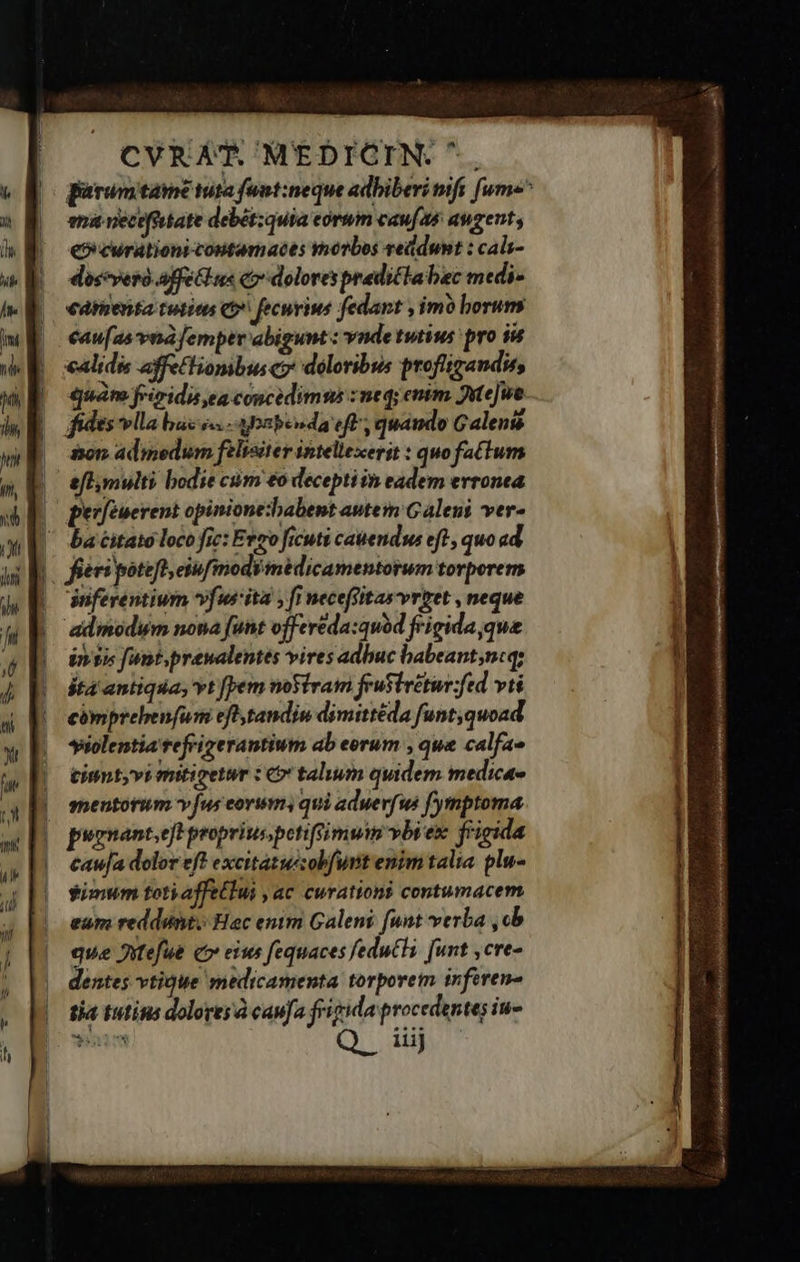 CVRAT. MEDICIN.
parum tamē tuta ſunt:neque adhiberi niſi ſum-
ma neceſsitate debēt:quia eorum cauſas augent,
& curationi contumaces morbos reddunt : cali-
dos verò affectus & dolores prædicta hæc medi-
camenta tutius & ſecurius ſedant , imò horum
cauſas vnà ſemper abigunt : vnde tutius pro iis
calidis affectionibus & doloribus profligandis,
quàm frigidis,ea concedimus : neq; enim Meſuæ
fides vlla hac in habenda eſt , quando Galenū
non admodum feliciter intellexerit : quo factum
eſt,multi hodie cùm eo decepti in eadem erronea
perſeuerent opinione:habent autem Galeni ver-
ba citato loco ſic: Ergo ſicuti cauendus eſt, quo ad
fieri poteſt,eiuſmodi medicamentorum torporem
inferentium vſus:ita , ſi neceſsitas vrget , neque
admodum noua ſunt offerēda:quòd frigida,quæ
in iis ſunt,præualentes vires adhuc habeant,neq;
ità antiqua, vt ſpem noſtram fruſtrētur:ſed vti
comprehenſum eſt,tandiu dimittēda ſunt,quoad
violentia refrigerantium ab eorum , quæ calfa-
ciunt,vi mitigetur : & talium quidem medica-
mentorum vſus eorum, qui aduerſus ſymptoma
pugnant,eſt proprius,potiſsimum vbi ex frigida
cauſa dolor eſt excitatus:obſunt enim talia plu-
rimum toti affectui , ac curationi contumacem
eum reddunt. Hæc enim Galeni ſunt verba , ob
quæ Meſuè & eius ſequaces ſeducti ſunt ,cre-
dentes vtique medicamenta torporem inferen-
tia tutius dolores à cauſa frigida procedentes iu-
Q iiij